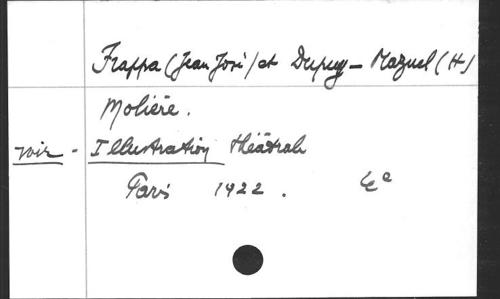 Frappa (Jean José) et Dupuy-Mazuel (H)
Molière.
voir - Illustration théâtrale
Paris 1922.